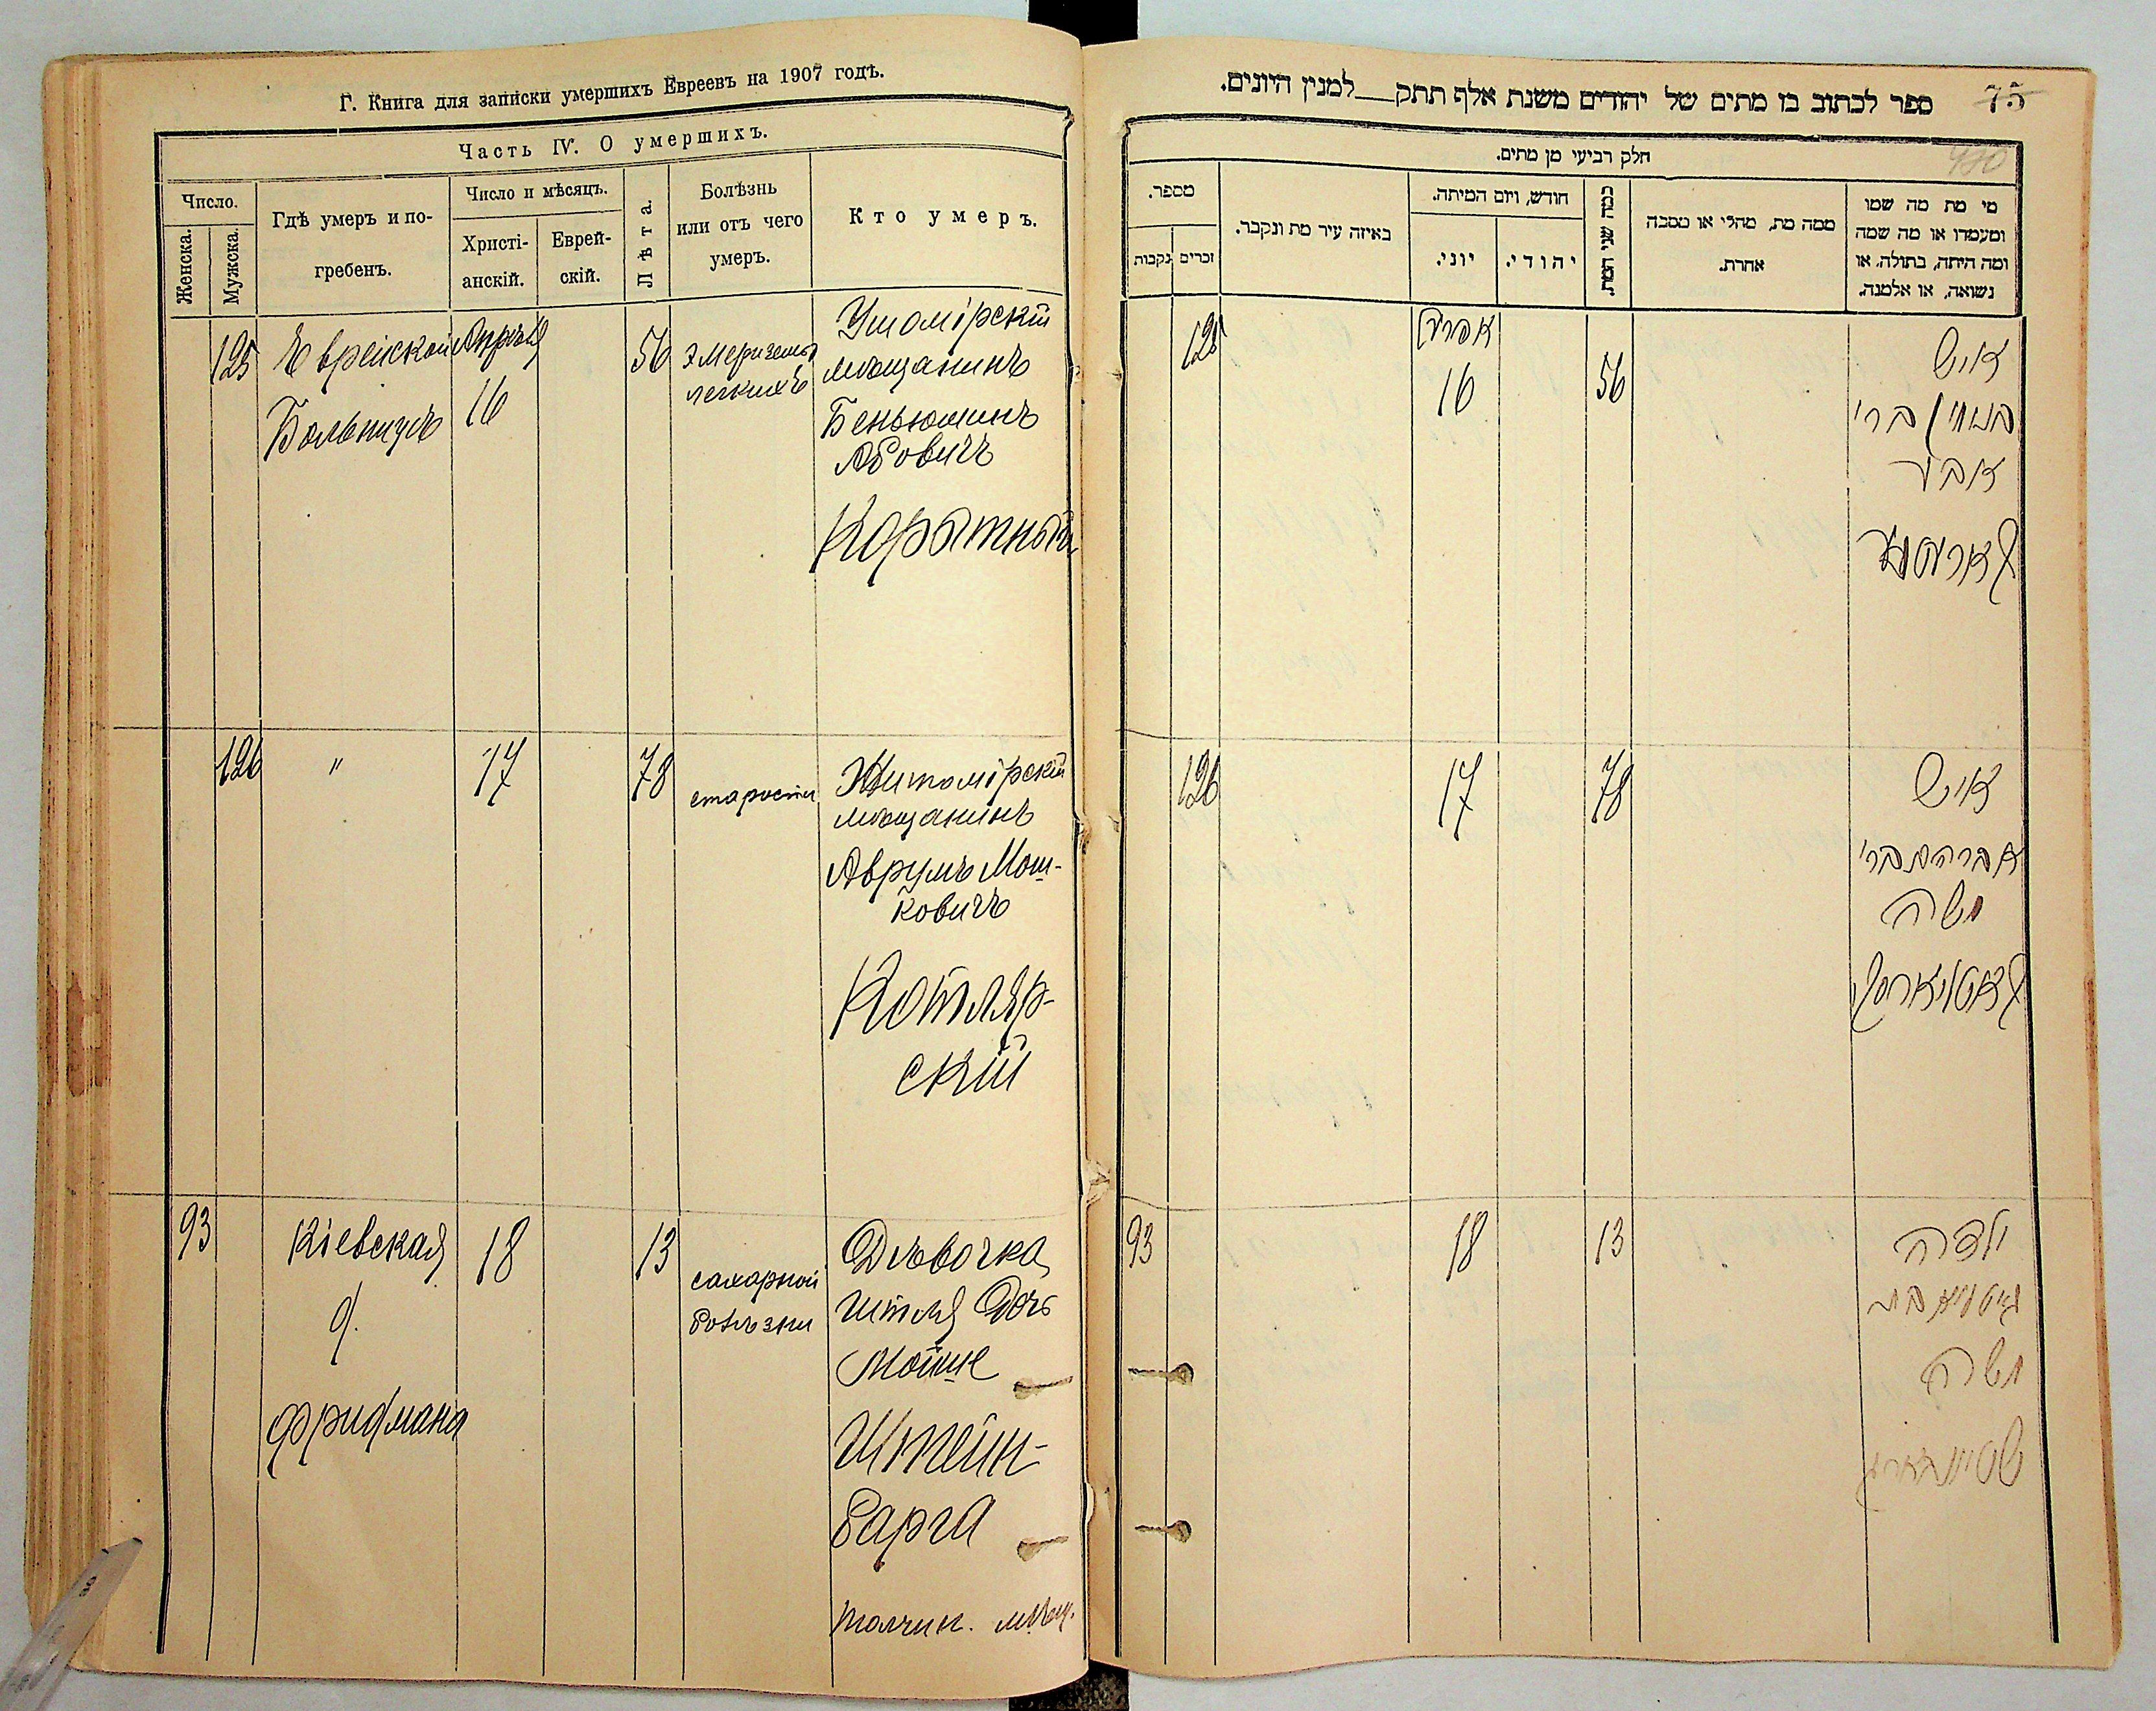 Г. Книга для записки умершихъ Евреевъ на 1907 годъ.
Часть IV. О умершихъ.
Число.
Женска.
Мужска.
Гдѣ умеръ и по-
гребенъ.
Число и мѣсяцъ.
Христі-
анскій.
Еврей-
скій.
Лѣта.
Болѣзнь
или отъ чего
умеръ.
Кто умеръ.
125
Еврейской
Больницѣ
Апрѣля
16
56
легкихъ
Ушомірскій
мѣщанинъ
Беньюминъ
Абовичъ
Коротный
126
"
17
78
старости
Житомірскій
мѣщанинъ
Аврумъ Мош-
ковичъ
Котляр-
скій
93
Кіевская
д.
Фридмана
18
13
сахарной
болѣзни
Дѣвочка
Итля Дочь
Мойше
Штейн-
барга
толчин. мѣщ.
ספר לכתוב בו מתים של יהודים משנת אלף תתק__למנין היונים.
75
חלק רביעי מן מתים.
490
מספר.
נקבות
זכרים
באיזה עיר מת ונקבר.
חודש, ויום המיתה.
יוני.
יהודי.
כמה שני המת.
ממה מת, מחלי או מסבה
אחרת.
מי מת מה שמו
ומעמדו או מה שמה
ומה היתה, בתולה, או
נשואה, או אלמנה.
125
אפריל
16
56
איש
בנימין ברי
אבא
126
17
78
איש
אברהם ברי
משה
קאטליארסקי
93
18
13
ילדה
איטליא בת
משה
שטיינבארג